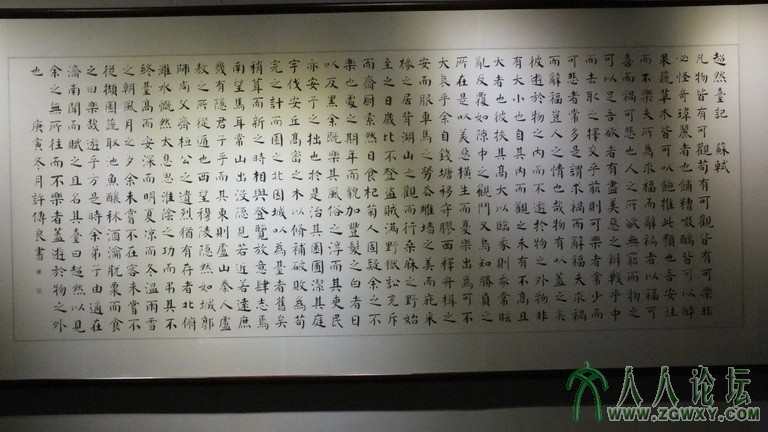 超然臺記 蘇軾
凡物皆有可觀苟有可觀皆有可樂非
必怪奇瑋麗者也餔糟啜醨皆可以醉
果蔬草木皆可以飽推此類也吾安往
而不樂夫所為求福而辭禍者以福可
喜而禍可悲也人之所欲無窮而物之
可以足吾欲者有盡美惡之辨戰乎中
而去取之擇交乎前則可樂者常少而
可悲者常多是謂求禍而辭福夫求禍
而辭福豈人之情也哉物有以蓋之矣
彼遊於物之內而不遊於物之外物非
有大小也自其內而觀之未有不高且
大者也彼挾其高大以臨我則我常眩
亂反覆如隙中之觀鬥又焉知勝負之
所在是以美惡橫生而憂樂出焉可不
大哀乎余自錢塘移守膠西釋舟楫之
安而服車馬之勞去雕墻之美而庇采
椽之居背湖山之觀而行桑麻之野始
至之日歲比不登盜賊滿野獄訟充斥
而齋廚索然日食杞菊人固疑余之不
樂也處之期年而貌加豐髮之白者日
以反黑余既樂其風俗之淳而其吏民
亦安予之拙也於是治其園圃潔其庭
宇伐安丘高密之木以修補破敗為苟
完之計而園之北因城以為臺者舊矣
稍葺而新之時相與登覽放意肆志焉
南望馬耳常山出沒隱見若近若遠庶
幾有隱君子乎而其東則盧山秦人盧
敖之所從遁也西望穆陵隱然如城郭
師尚父齊桓公之遺烈猶有存者北俯
濰水慨然太息思淮陰之功而弔其不
終臺高而安深而明夏涼而冬溫雨雪
之朝風月之夕余未嘗不在客未嘗不
從擷園蔬取池魚釀秫酒瀹脫粟而食
之曰樂哉遊乎方是時余弟子由適在
濟南聞而賦之且名其臺曰超然以見
余之無所往而不樂者蓋遊於物之外
也 庚寅冬月許傳良書
人人论坛
www.zgwxy.com